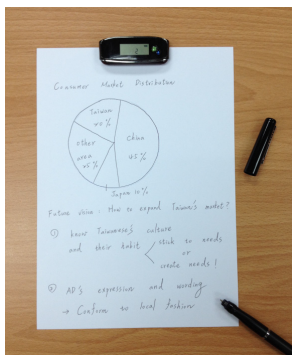 Consumer Market Distribution
Taiwan
40%
China
45%
other
area
05%
Japan 10%
Future vision: How to expand Taiwan's market?
① know Taiwanese's culture
and their habit
stick to needs
or
create needs!
② AD's expression and wording
→ Conform to local fashion